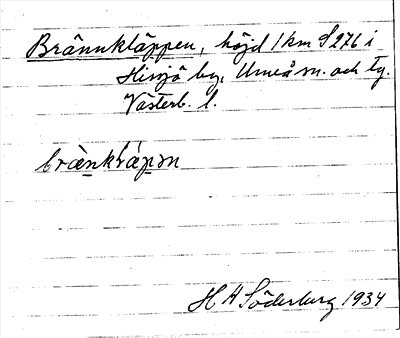 Brännkläppen, höjd 1 km S 276 i
Hissjö by, Umeå sn. och tg.
Västerb. l.
brä̀nkλápən
H A Söderberg 1934